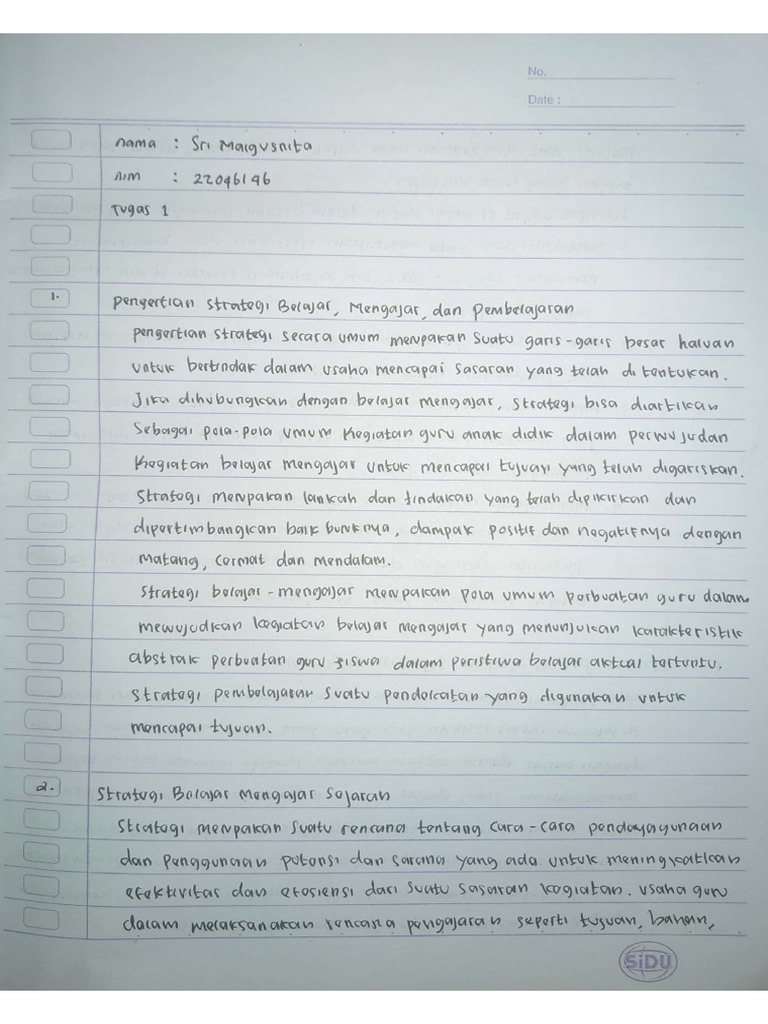 No.
Date :
nama : Sri Maigusnita
nim : 22046146
Tugas 1
1. pengertian strategi Belajar, Mengajar, dan Pembelajaran
pengertian strategi secara umum merupakan suatu garis-garis besar haluan
untuk bertindak dalam usaha mencapai sasaran yang telah ditentukan.
Jika dihubungkan dengan belajar mengajar, strategi bisa diartikan
Sebagai pola-pola umum kegiatan guru anak didik dalam perwujudan
kegiatan belajar mengajar untuk mencapai tujuan yang telah digariskan.
Strategi merupakan lankah dan tindakan yang telah dipikirkan dan
dipertimbangkan baik buruknya, dampak positif dan negatifnya dengan
matang, cermat dan mendalam.
Strategi belajar-mengajar merupakan pola umum perbuatan guru dalam
mewujudkan kegiatan belajar mengajar yang menunjukan karakteristik
abstrak perbuatan guru siswa dalam peristiwa belajar aktual tertentu.
Strategi pembelajaran suatu pendekatan yang digunakan untuk
mencapai tujuan.
2. Strategi Belajar Mengajar Sejarah
Strategi merupakan suatu rencana tentang cara-cara pendayagunaan
dan penggunaan potensi dan sarana yang ada untuk meningkatkan
efektivitas dan efesiensi dari suatu sasaran kegiatan. usaha guru
dalam melaksanakan rencana pengajaran seperti tujuan, bahan,
SiDU